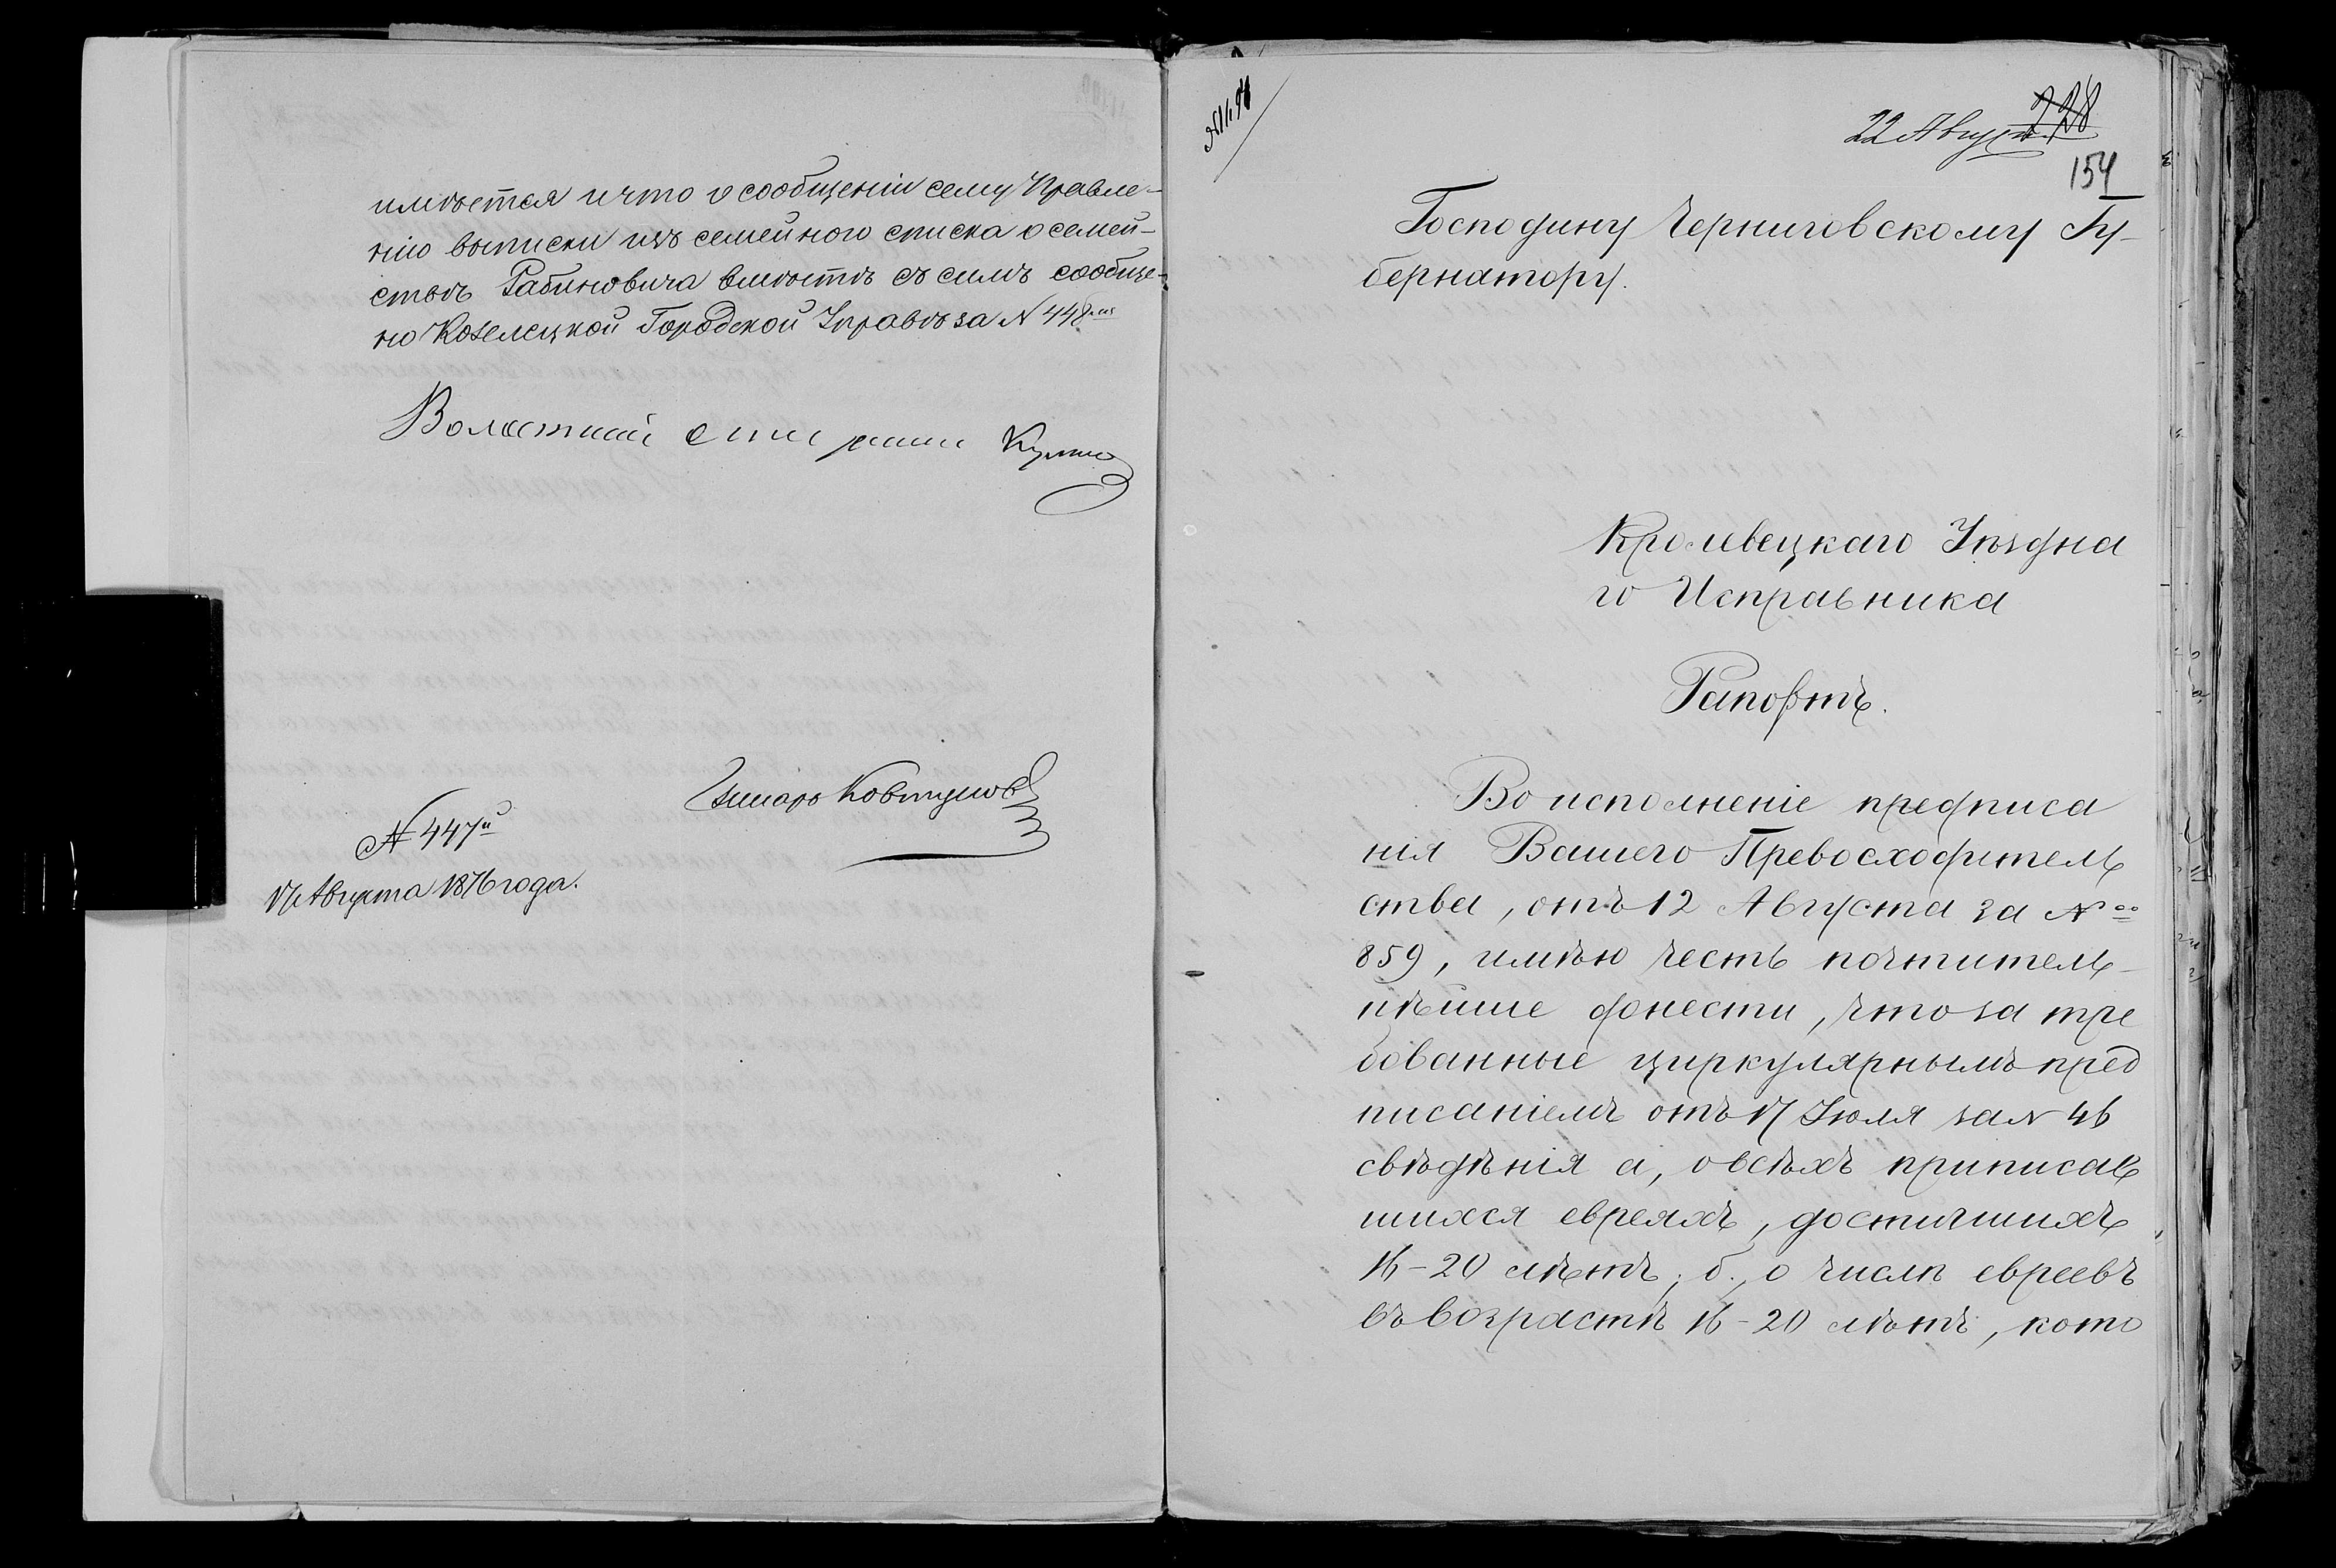 имѣется и что о сообщеніи сему Правле-
нію выписки изъ семейного списка о семей-
ствѣ Рабиновича вмѣстѣ съ симъ сообще-
но Козелецкой Городской Управѣ за N 448.мъ
Волостной старшина
Писарь Ковтуновъ
N 447й
17 Августа 1876 года.
22 Августа
728
154
Господину Черниговскому Гу-
бернатору.
Кролевецкаго Уѣздна
го Исправника
Рапортъ.
Во исполненіе предписа
нія Вашего Превосходитель
ства, отъ 12 Августа за №
859, имѣю честь почтитель-
нѣйше донести, что за тре
бованные циркулярнымъ пред
писаніемъ отъ 17 Іюля за N 46
свѣдѣнія а, о всѣхъ приписав
шихся евреяхъ, достигшихъ
16-20 лѣтъ; б., о числѣ евреевъ
въ возрастѣ 16-20 лѣтъ, кото